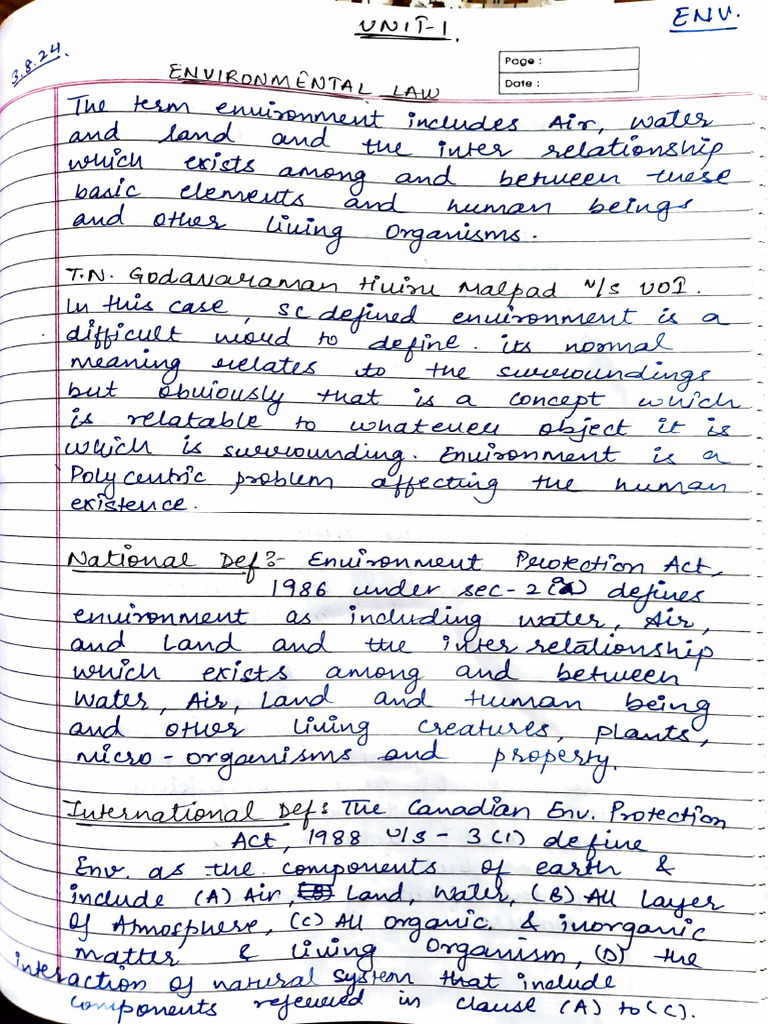 UNIT-1.
ENV.
3.8.24
Page :
Date :
ENVIRONMENTAL LAW
The term environment includes Air, water
and land and the inter relationship
which exists among and between these
basic elements and human beings
and other living organisms.
T.N. Godavaraman Hiiru Malpad v/s UOI.
In this case, SC defined environment is a
difficult word to define. its normal
meaning relates to the surroundings
but obviously that is a concept which
is relatable to whatever object it is
which is surrounding. Environment is a
Polycentric problem affecting the human
existence.
National Def:- Environment Protection Act,
1986 under sec-2(a) defines
environment as including water, Air,
and Land and the inter relationship
which exists among and between
Water, Air, Land and Human being
and other living creatures, plants,
micro-organisms and property.
International Def: The Canadian Env. Protection
Act, 1988 u/s - 3(1) define
Env. as the components of earth &
include (A) Air, Land, Water, (B) All layer
of Atmosphere, (C) All organic & inorganic
matter & living Organism, (D) the
interaction of natural system that include
components referred in clause (A) to (C).